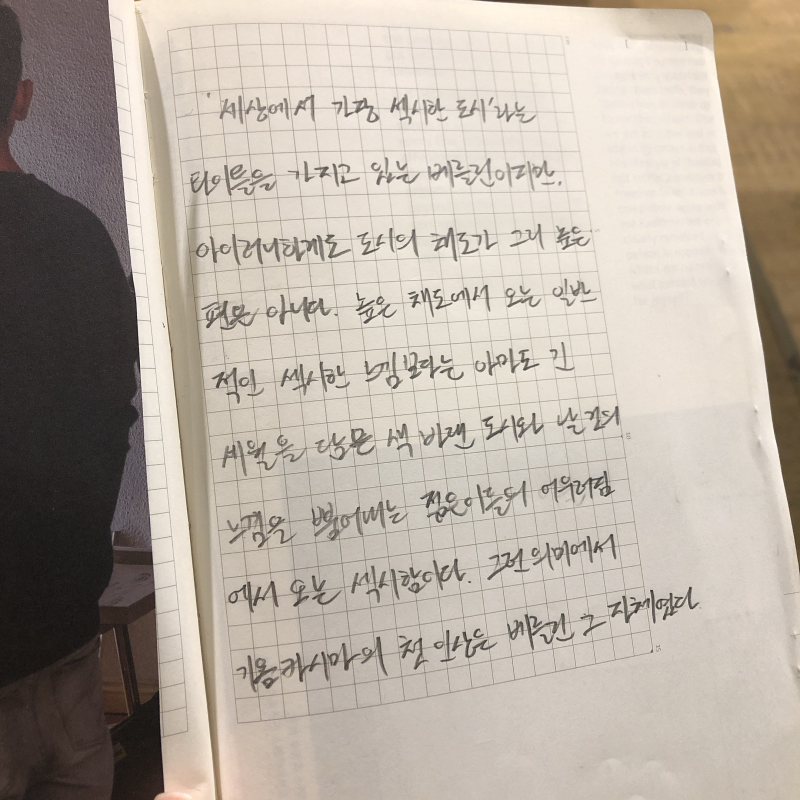 '세상에서 가장 섹시한 도시'라는
타이틀을 가지고 있는 베를린이지만,
아이러니하게도 도시의 채도가 그리 높은
편은 아니다. 높은 채도에서 오는 일반
적인 섹시한 느낌보다는 아마도 긴
세월을 담은 색 바랜 도시와 날 것의
느낌을 뿜어내는 젊은이들의 어우러짐
에서 오는 섹시함이다. 그런 의미에서
첫 인상은 베를린 그 자체였다